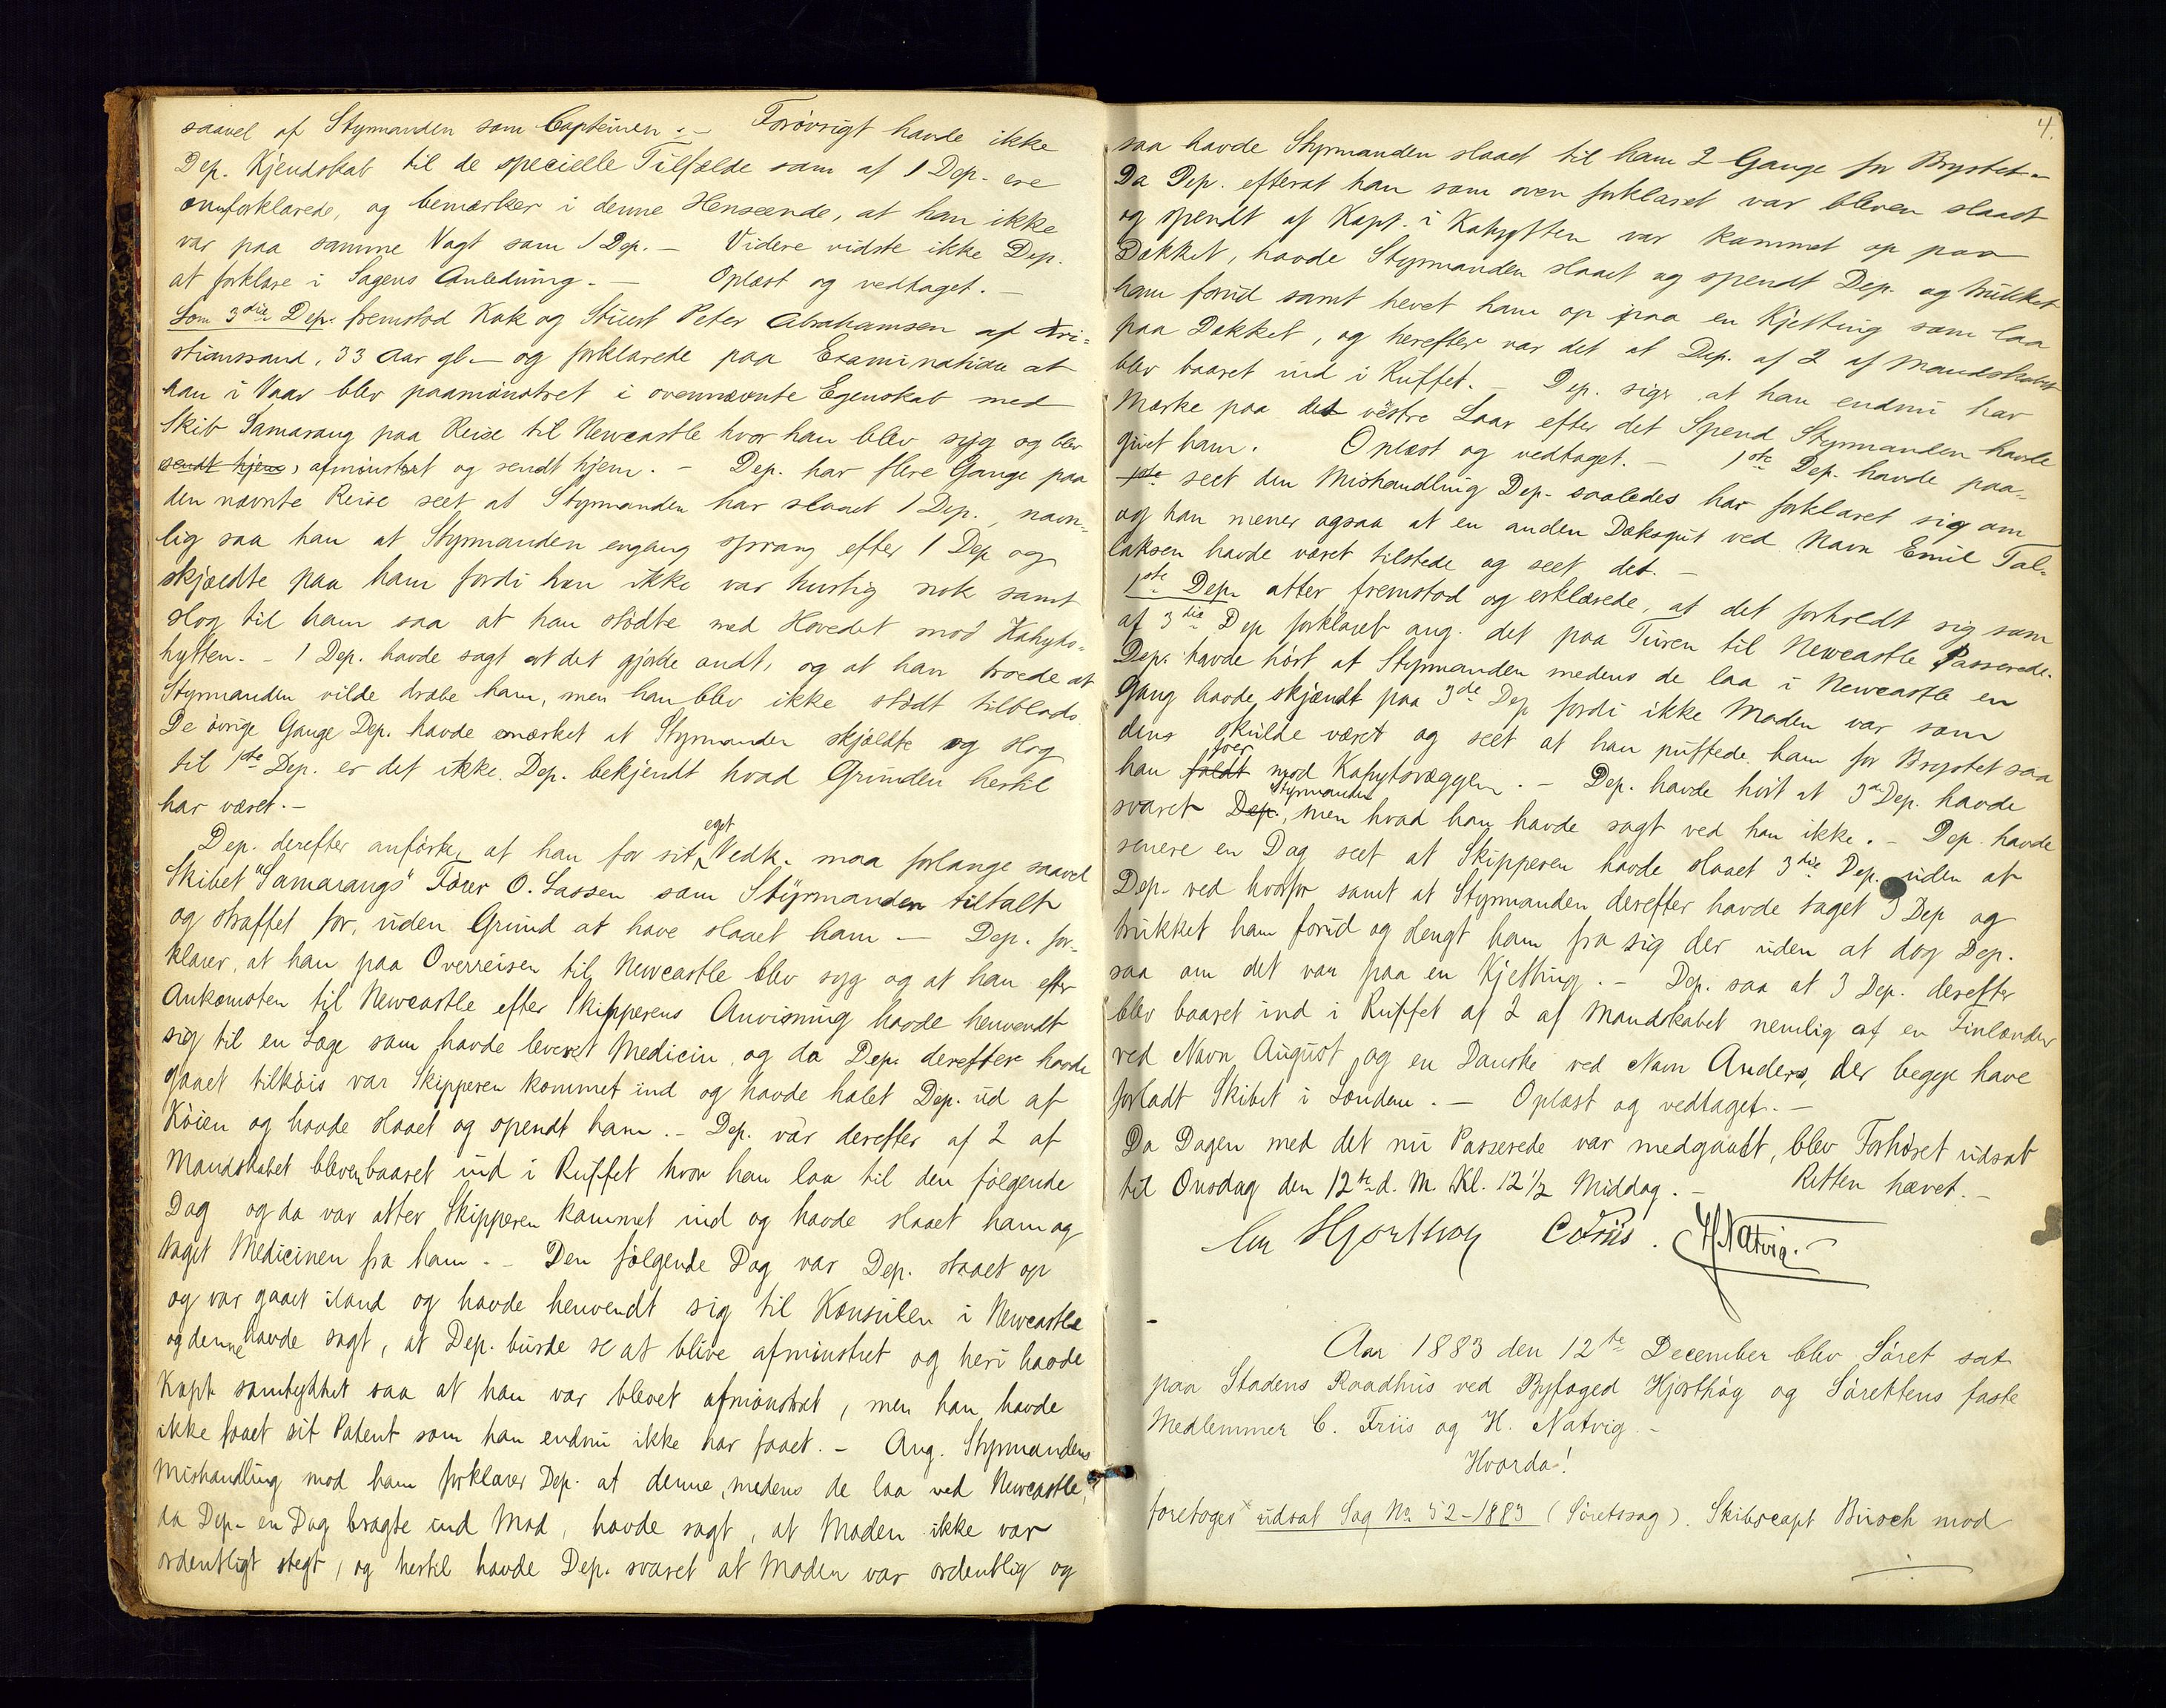 saavel af Styrmanden som Capteinen. – Forøvrigt havde ikke
Dep. Kjendskab til de specielle Tilfælde som af 1 Dep. ere
omforklarede, og bemærker i denne Henseende, at han ikke
var paa samme Vagt som 1 Dep. – Videre vidste ikke Dep.
at forklare i Sagens Anledning. – Oplæst og vedtaget. –
Som 3die Dep. fremstod Kok og Stuert Peter Abrahamsen af Kri-
stianssand, 33 Aar gl. – og forklarede paa Examination at
han i Vaar blev paamønstret i ovennævnte Egenskab med
Skib Samarang paa Reise til Newcastle hvor han blev syg og blev
sendt hjem, afmønstret og sendt hjem. – Dep. har flere Gange paa
den nævnte Reise seet at Styrmanden har slaaet 1 Dep., navn-
lig saa han at Styrmanden engang sprang efter 1 Dep og
skjældte paa ham fordi han ikke var hurtig nok samt
slog til ham saa at han stødte med Hovedet mod Kahyts-
hytten. – 1 Dep. havde sagt at det gjorde ondt, og at han troede at
Styrmanden vilde dræbe ham, men han blev ikke stødt tilblods.
De øvrige Gange Dep. havde mærket at Styrmanden skjældte og slog
til 1ste Dep. er det ikke Dep. bekjendt hvad Grunden hertil
har været. –
Dep. derefter anførte, at han for sit eget Vedk. maa forlange saavel
Skibet "Samarangs" Fører O. Lassen som Styrmanden tiltalt
og straffet for, uden Grund at have slaaet ham – Dep. for-
klarer, at han paa Overreisen til Newcastle blev syg og at han efter
Ankomsten til Newcastle efter Skipperens Anvisning havde henvendt
sig til en Læge som havde leveret Medicin, og da Dep. derefter havde
gaaet tilkøis var Skipperen kommet ind og havde halet Dep. ud af
Køien og havde slaaet og spendt ham. – Dep. var derefter af 2 af
Mandskabet bleven baaret ind i Ruffet hvor han laa til den følgende
Dag og da var atter Skipperen kommet ind og havde slaaet ham og
taget Medicinen fra ham. – Den følgende Dag var Dep. staaet op
og var gaaet iland og havde henvendt sig til Konsulen i Newcastle
og denne havde sagt, at Dep. burde se at blive afmønstret og heri havde
Kapt samtykket saa at han var blevet afmønstret, men han havde
ikke faaet sit Patent som han endnu ikke har faaet. – Ang. Styrmandens
Mishandling mod ham forklarer Dep. at denne, medens de laa ved Newcastle,
da Dep. en Dag bragte ind Mad, havde sagt, at Maden ikke var
ordentligt stegt, og hertil havde Dep. svaret at Maden var ordentlig og
4.
saa havde Styrmanden slaaet til ham 2 Gange for Brystet. –
Da Dep. efterat han som oven forklaret var bleven slaaet
og spendt af Kapt. i Kahytten var kommet op paa
Dækket, havde Styrmanden slaaet og spendt Dep. og trukket
ham forud samt hevet ham op paa en Kjetting som laa
paa Dækket, og herefter var det at Dep. af 2 af Mandskabet
blev baaret ind i Ruffet. – Dep. siger at han endnu har
Mærke paa det vestre Laar efter det Spend Styrmanden havde
givet ham. Oplæst og vedtaget. – 1ste Dep. havde paa-
1ste seet den Mishandling Dep. saaledes har forklaret sig om
og han mener ogsaa at en anden Dæksgut ved Navn Emil Tal-
laksen havde været tilstede og seet det. –
1ste Dep. atter fremstod og erklærede, at det forholdt sig som
af 3die Dep forklaret ang. det paa Turen til Newcastle Passerede.
Dep. havde hørt at Styrmanden medens de laa i Newcastle en
Gang havde skjændt paa 3de Dep fordi ikke Maden var som
den skulde været og seet at han puffede ham for Brystet saa
han faldt foer mod Kahytsvæggen. – Dep. havde hørt at 3die Dep. havde
svaret Dep. Styrmanden, men hvad han havde sagt ved han ikke. – Dep. havde
senere en Dag seet at Skipperen havde slaaet 3die Dep. uden at
Dep. ved hvorfor samt at Styrmanden derefter havde taget 3 Dep og
trukket ham forud og dengt ham fra sig der uden at dog Dep.
saa om det var paa en Kjetting. – Dep. saa at 3 Dep. derefter
blev baaret ind i Ruffet af 2 af Mandskabet nemlig af en Finlænder
ved Navn August og en Danske ved Navn Anders, der begge have
forladt Skibet i London. – Oplæst og vedtaget. –
Da Dagen med det nu Passerede var medgaaet, blev Forhøret udsat
til Onsdag den 12te d. M. Kl. 12 1/2 Middag. – Retten hævet. –
Hjorthøy C Friis. H. Natvig.
Aar 1883 den 12te December blev Søret sat
paa Stadens Raadhus ved Byfoged Hjorthøy og Sørettens faste
Medlemmer C. Friis og H. Natvig. –
Hvorda!
foretoges udsat Sag No. 52–1883 (Søretssag). Skibscapt Busch mod